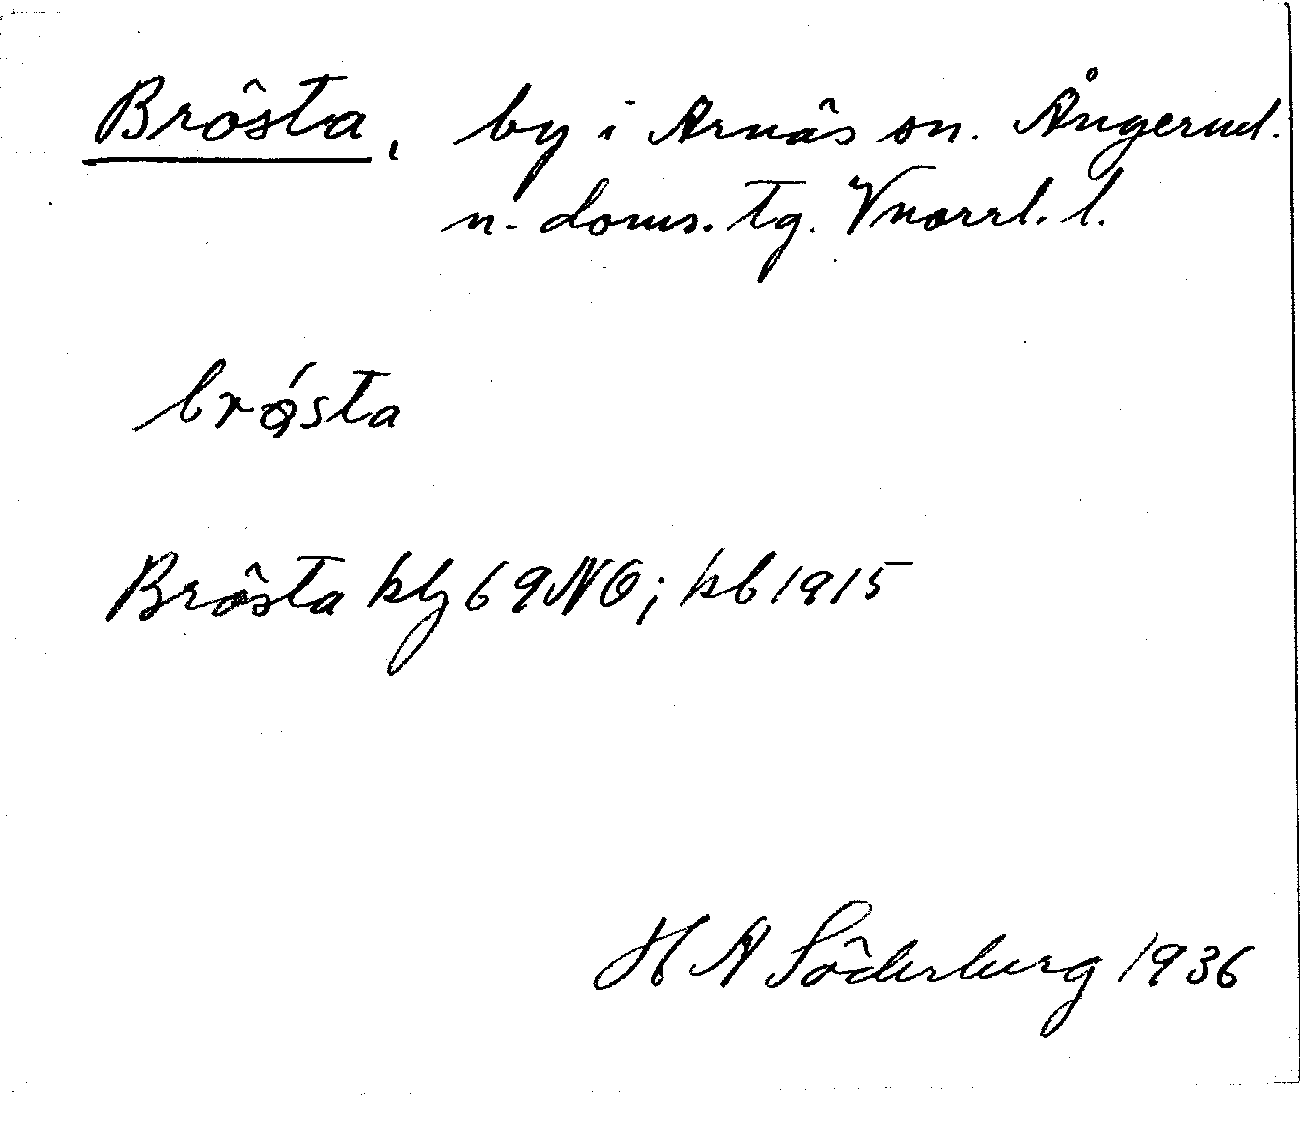 Brösta, by i Arnäs sn. Ångerml.
n. doms. tg. Vnorrl. l.
brǿsta
Brösta kbz 69NO; kb 1915
H A Söderberg 1936